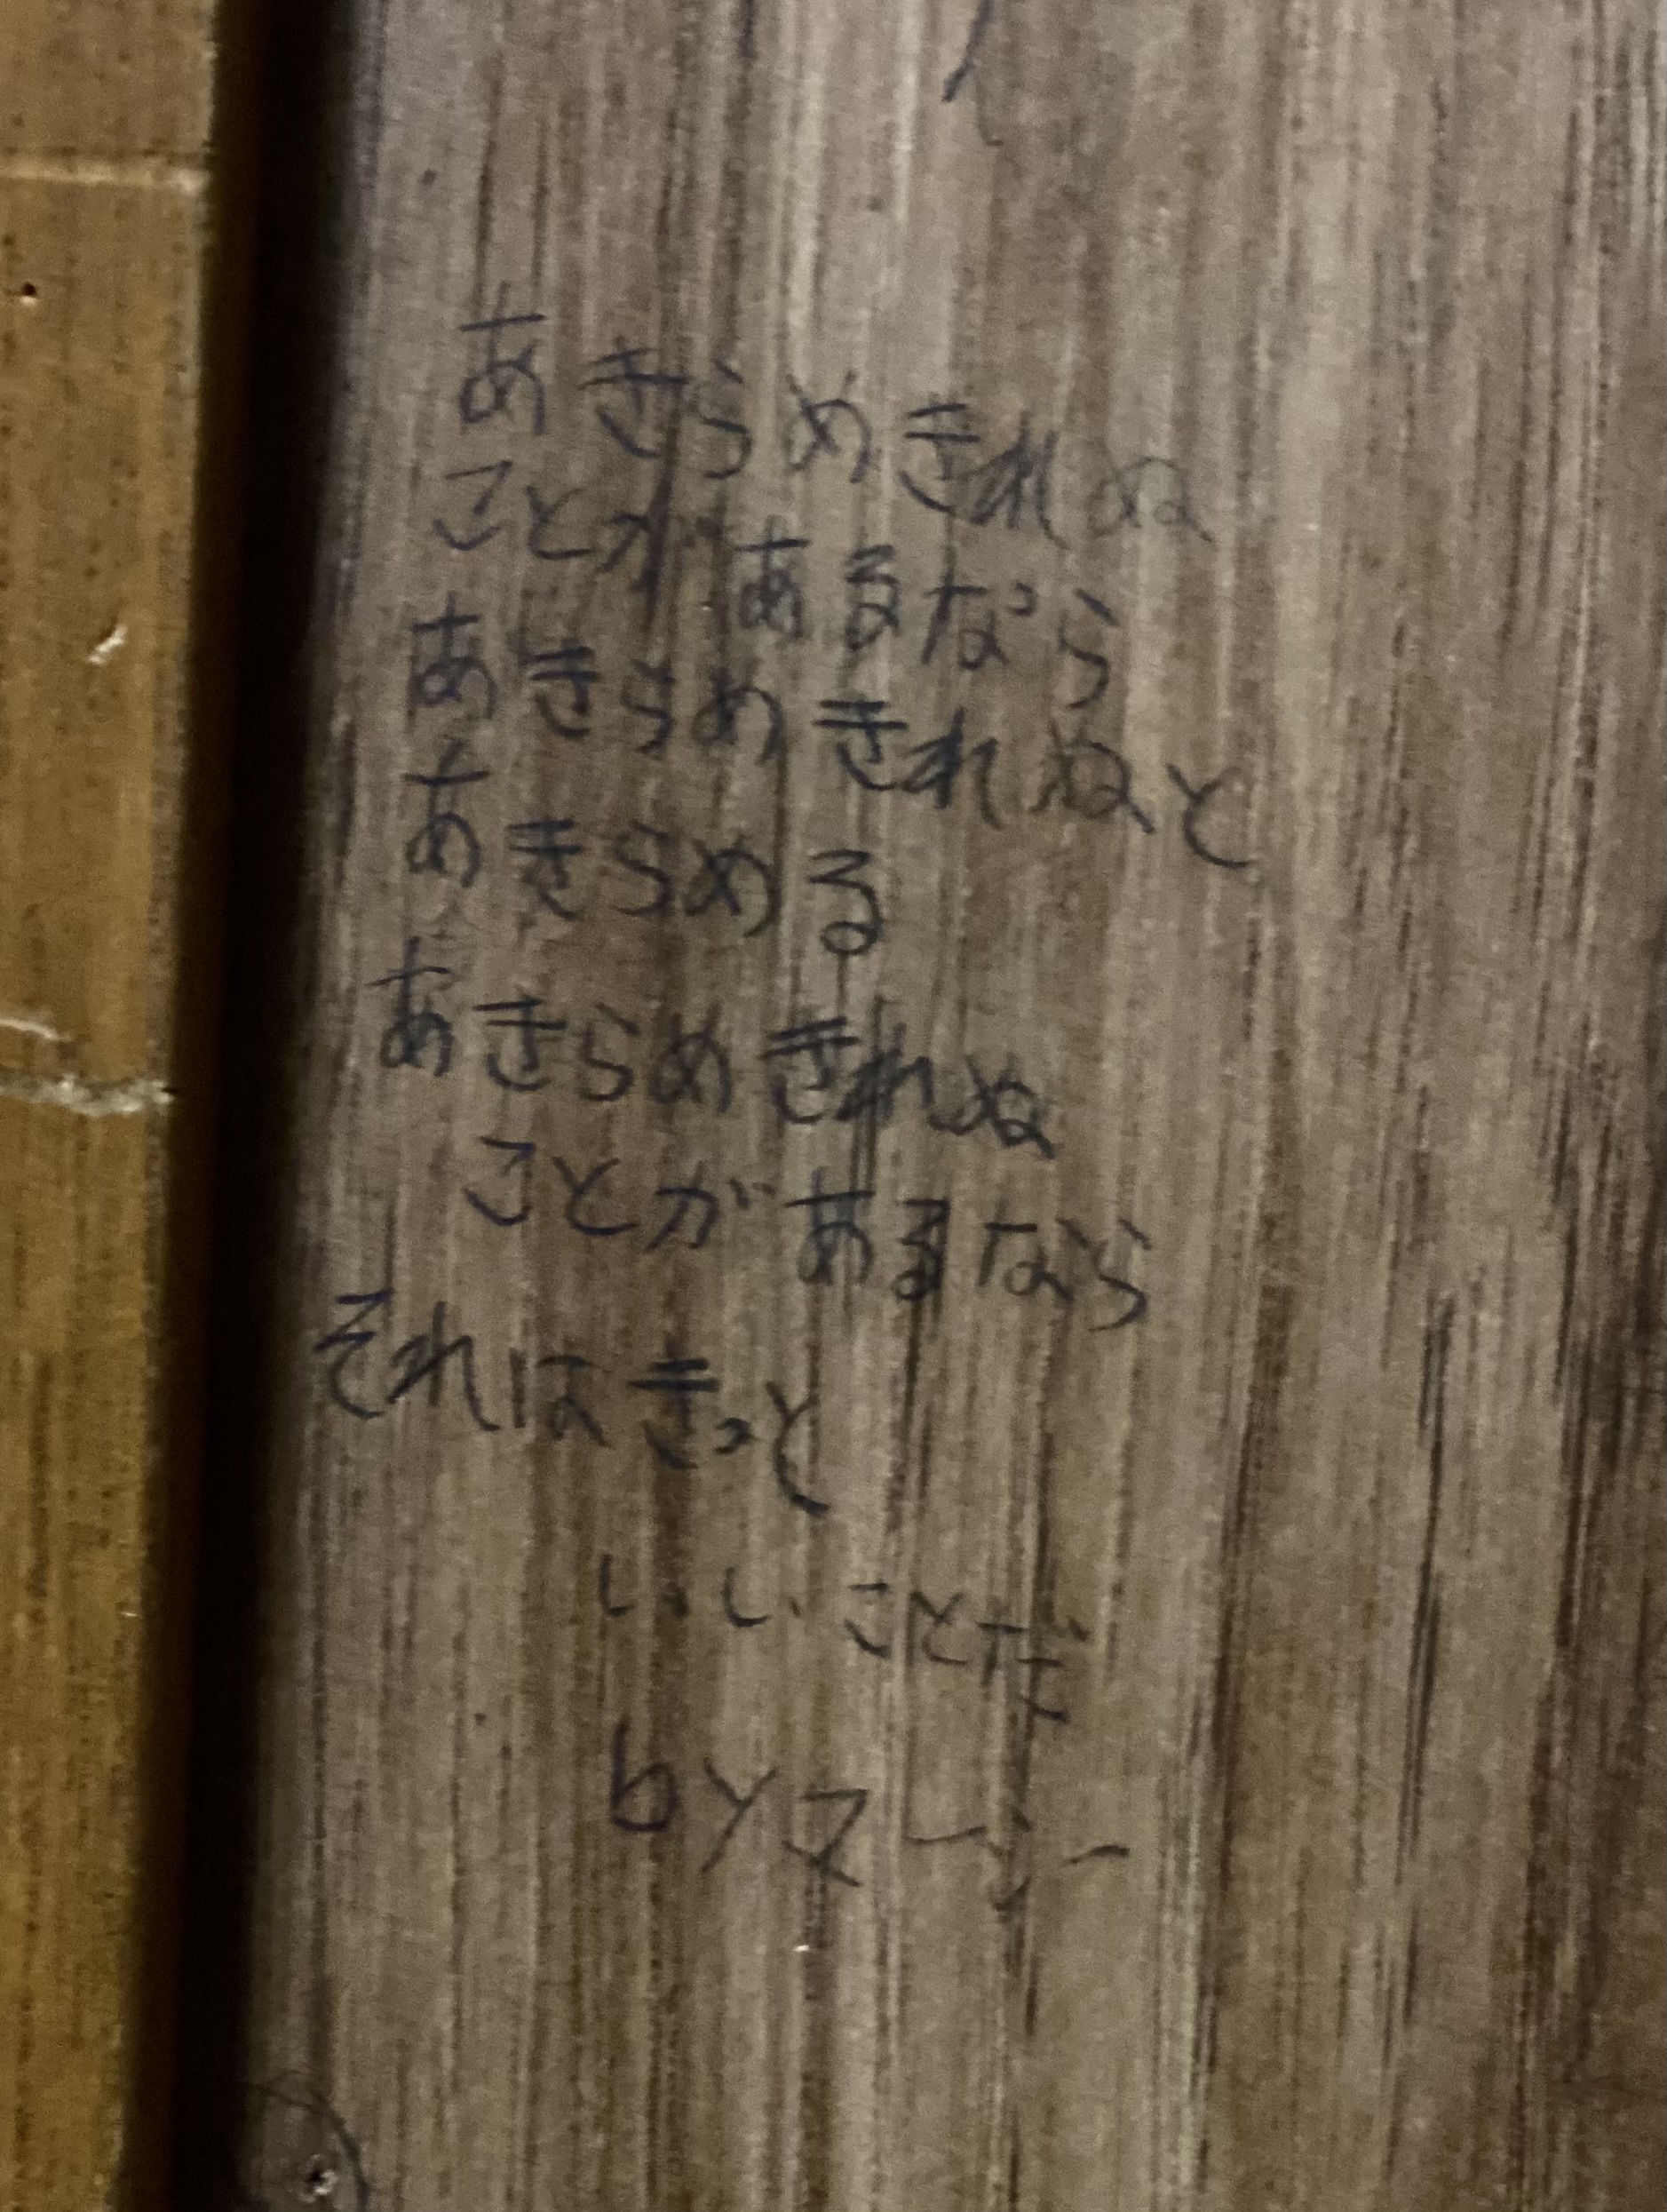 あきらめきれぬ
ことがあるなら
あきらめきれぬと
あきらめる
あきらめきれぬ
ことがあるなら
それはきっと
いいことだ
by